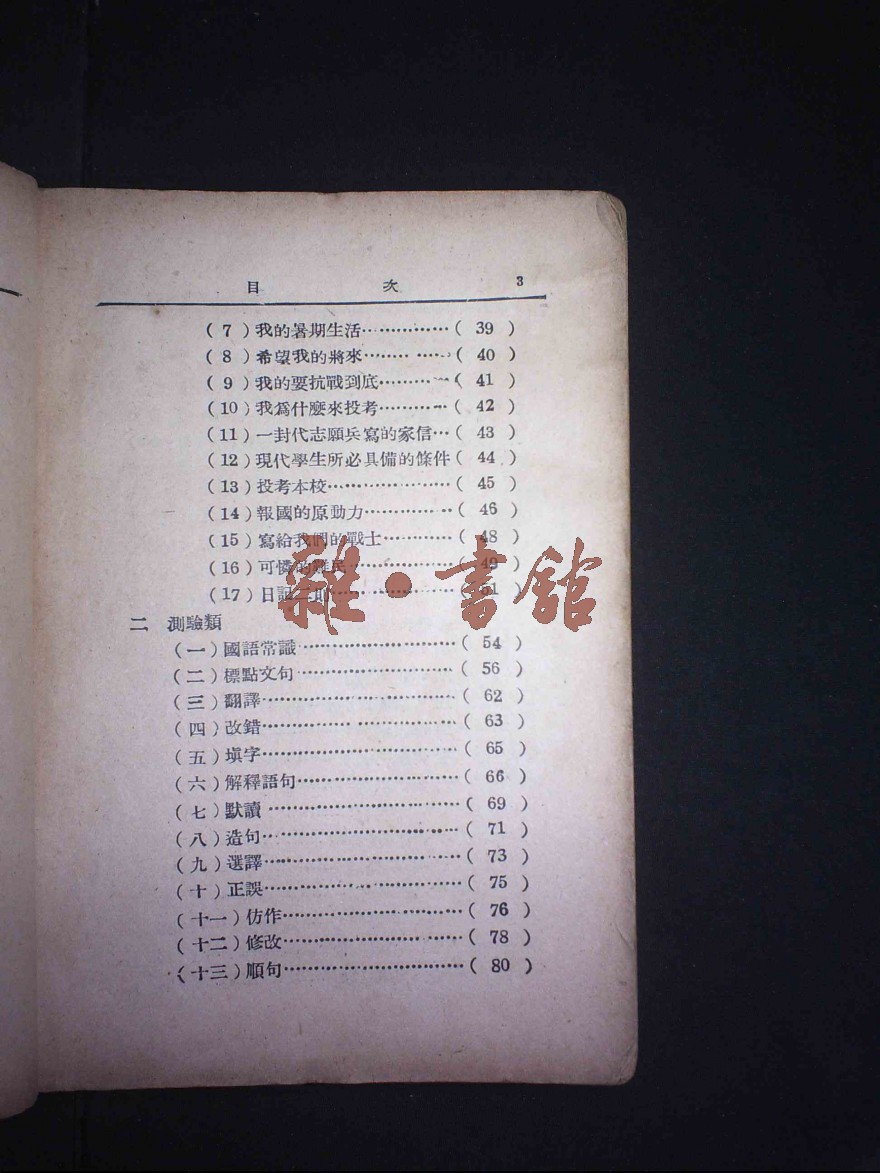 目 次 3
(7)我的暑期生活……………(39)
(8)希望我的將來……………(40)
(9)我的要抗戰到底…………(41)
(10)我爲什麼來投考…………(42)
(11)一封代志願兵寫的家信…(43)
(12)現代學生所必具備的條件(44)
(13)投考本校…………………(45)
(14)報國的原動力……………(46)
(15)寫給我們的戰士…………(48)
(16)可憐的難民………………(49)
(17)日記二則…………………(51)
二 測驗類
(一)國語常識…………………(54)
(二)標點文句…………………(56)
(三)翻譯………………………(62)
(四)改錯………………………(63)
(五)塡字………………………(65)
(六)解釋語句…………………(66)
(七)默讀………………………(69)
(八)造句………………………(71)
(九)選譯………………………(73)
(十)正誤………………………(75)
(十一)仿作……………………(76)
(十二)修改……………………(78)
(十三)順句……………………(80)
雜·書館